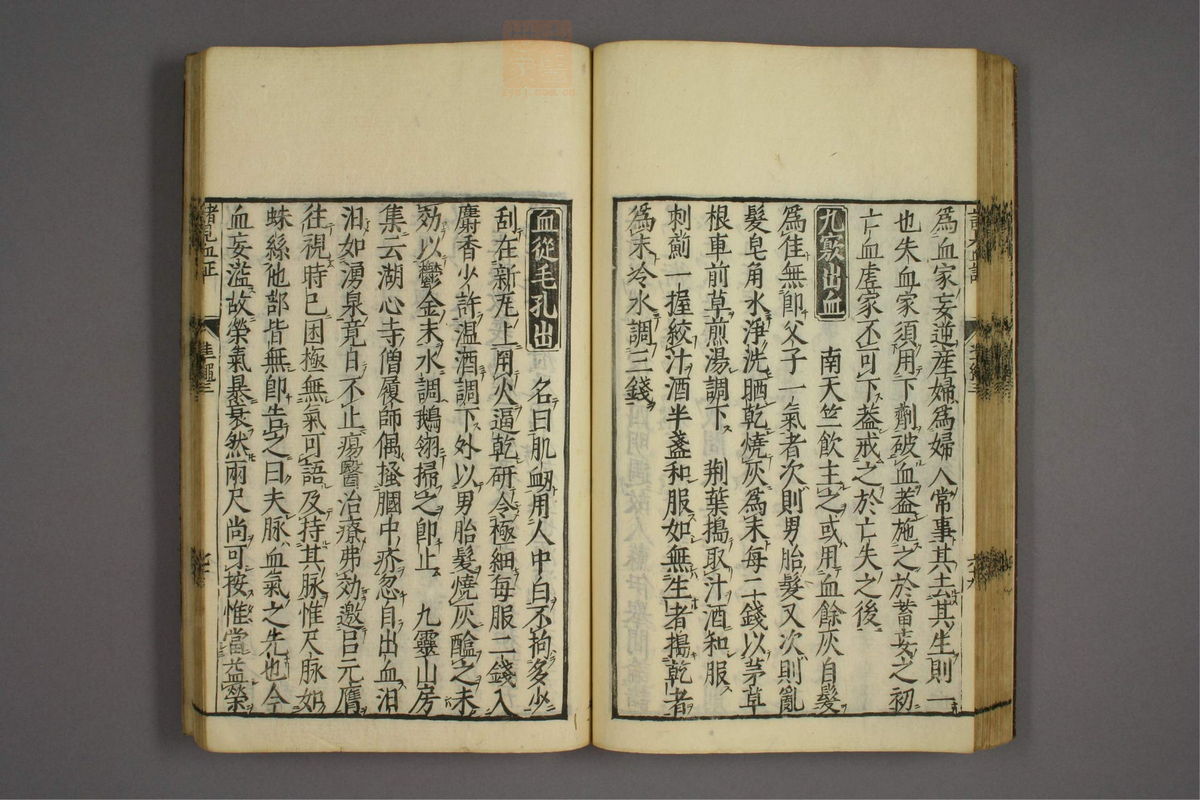 為血家妄逆産婦為婦人常事其去其生則一
也失血家須用下劑破血蓋施之於蓄妄之初
亡血虚家不可下蓋戒之於亡失之後
九竅出血 南天竺飲主之或用血餘灰自髮
為佳無即父子一氣者次則男胎髮又次則亂
髮皂角水淨洗晒乾燒灰為末每二錢以茅草
根車前草煎湯調下 荆葉搗取汁酒和服
刺薊一握絞汁酒半盞和服如無生者搗乾者
為末冷水調三錢
血從毛孔出 名曰肌衂用人中白不拘多少
刮在新瓦上用火逼乾研令極細每服二錢入
麝香少許温酒調下外以男胎髮燒灰醯之未
効以鬱金末水調鵝翎掃之即止 九靈山房
集云湖心寺僧履師偶搔膕中疥忽自出血汩
汩如湧泉竟日不止瘍醫治療弗効邀呂元膺
往視時已困極無氣可語及持其脉惟尺脉如
蛛絲他部皆無即告之曰夫脉血氣之先也今
血妄溢故榮氣暴衰然兩尺尚可按惟當益榮
諸見血証